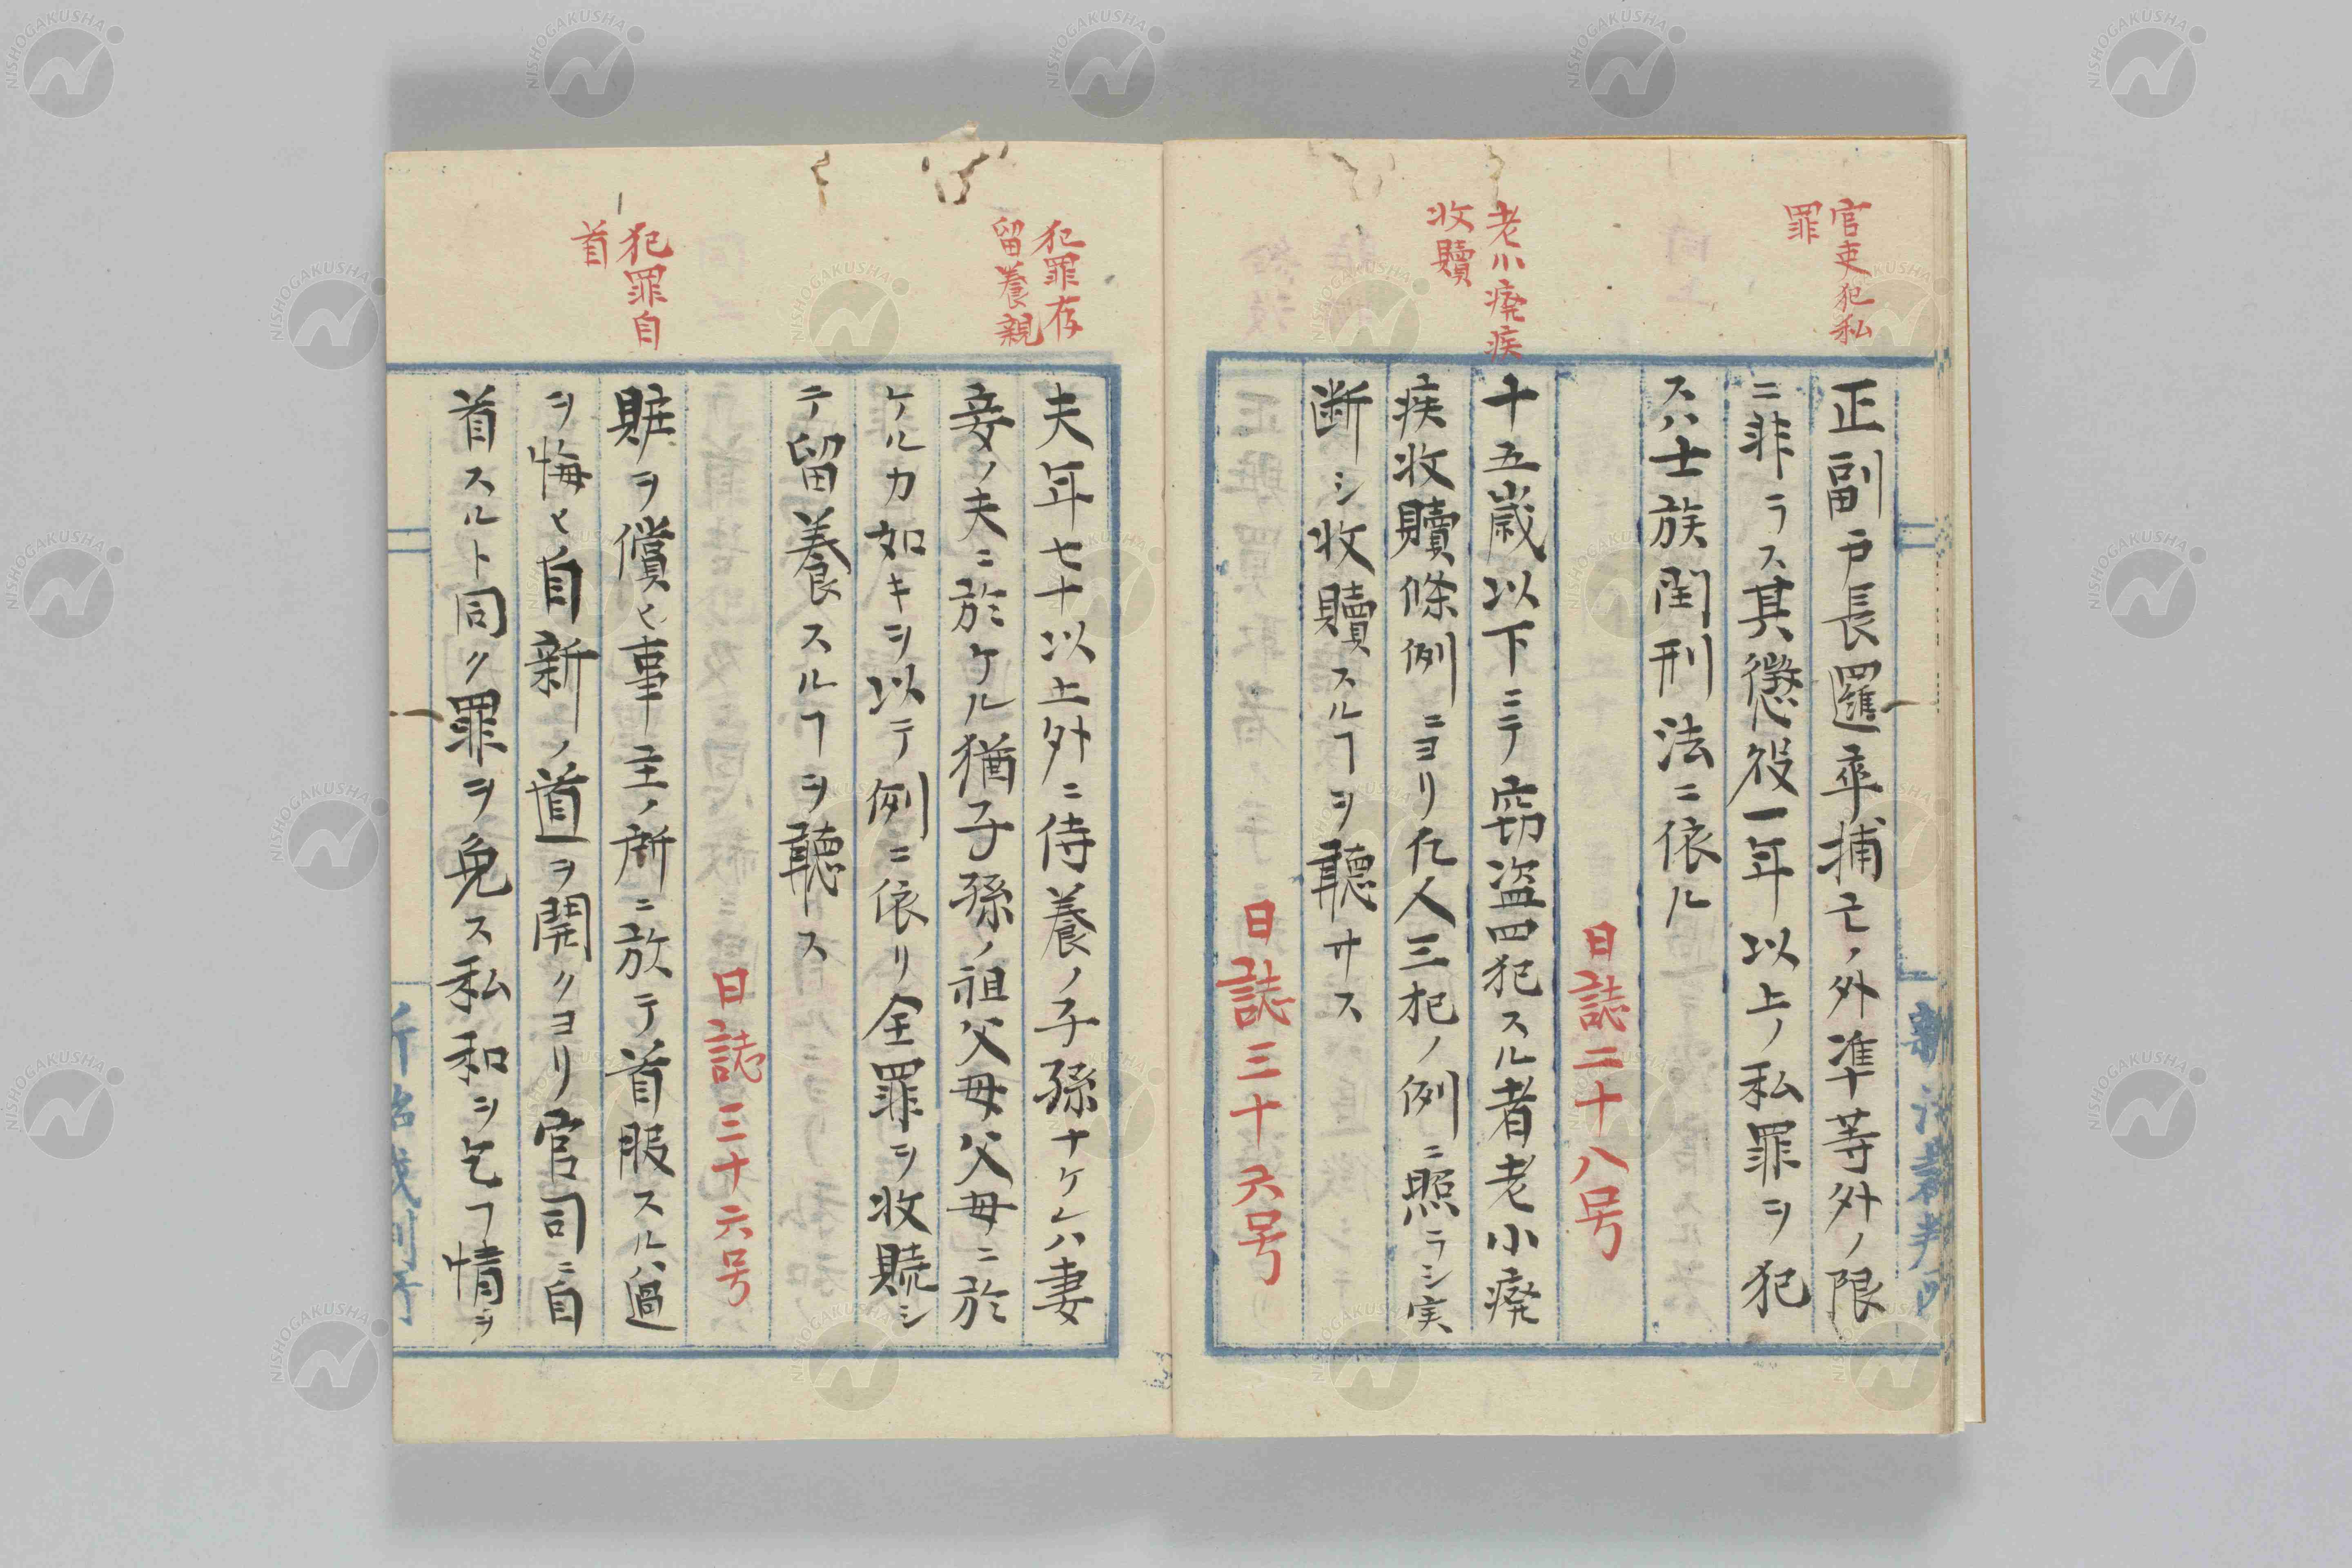 官吏犯私
罪
正副戸長邏卒捕亡ノ外準等外ノ限
ニ非ラス其懲役一年以上ノ私罪ヲ犯
スハ士族閏刑法ニ依ル
日誌二十八号
老小癈疾
收贖
十五歳以下ニテ窃盗四犯スル者老小癈
疾收贖條例ニヨリ仡人三犯ノ例ニ照ラシ実
断シ收贖スルヿヲ聽サス
日誌三十六号
犯罪存
留養親
夫年七十以上外ニ侍養ノ子孫ナケレハ妻
妾ノ夫ニ於ケル猶子孫ノ祖父母父母ニ於
ケルカ如キヲ以テ例ニ依リ全罪ヲ收贖シ
テ留養スルヿヲ聽ス
日誌三十六号
犯罪自
首
賍ヲ償ヒ事主ノ所ニ放テ首服スルハ過
ヲ悔ヒ自新ノ道ヲ開クヨリ官司ニ自
首スルト同ク罪ヲ免ス私和ヲ乞フ情ヲ
NISHOGAKUSHA